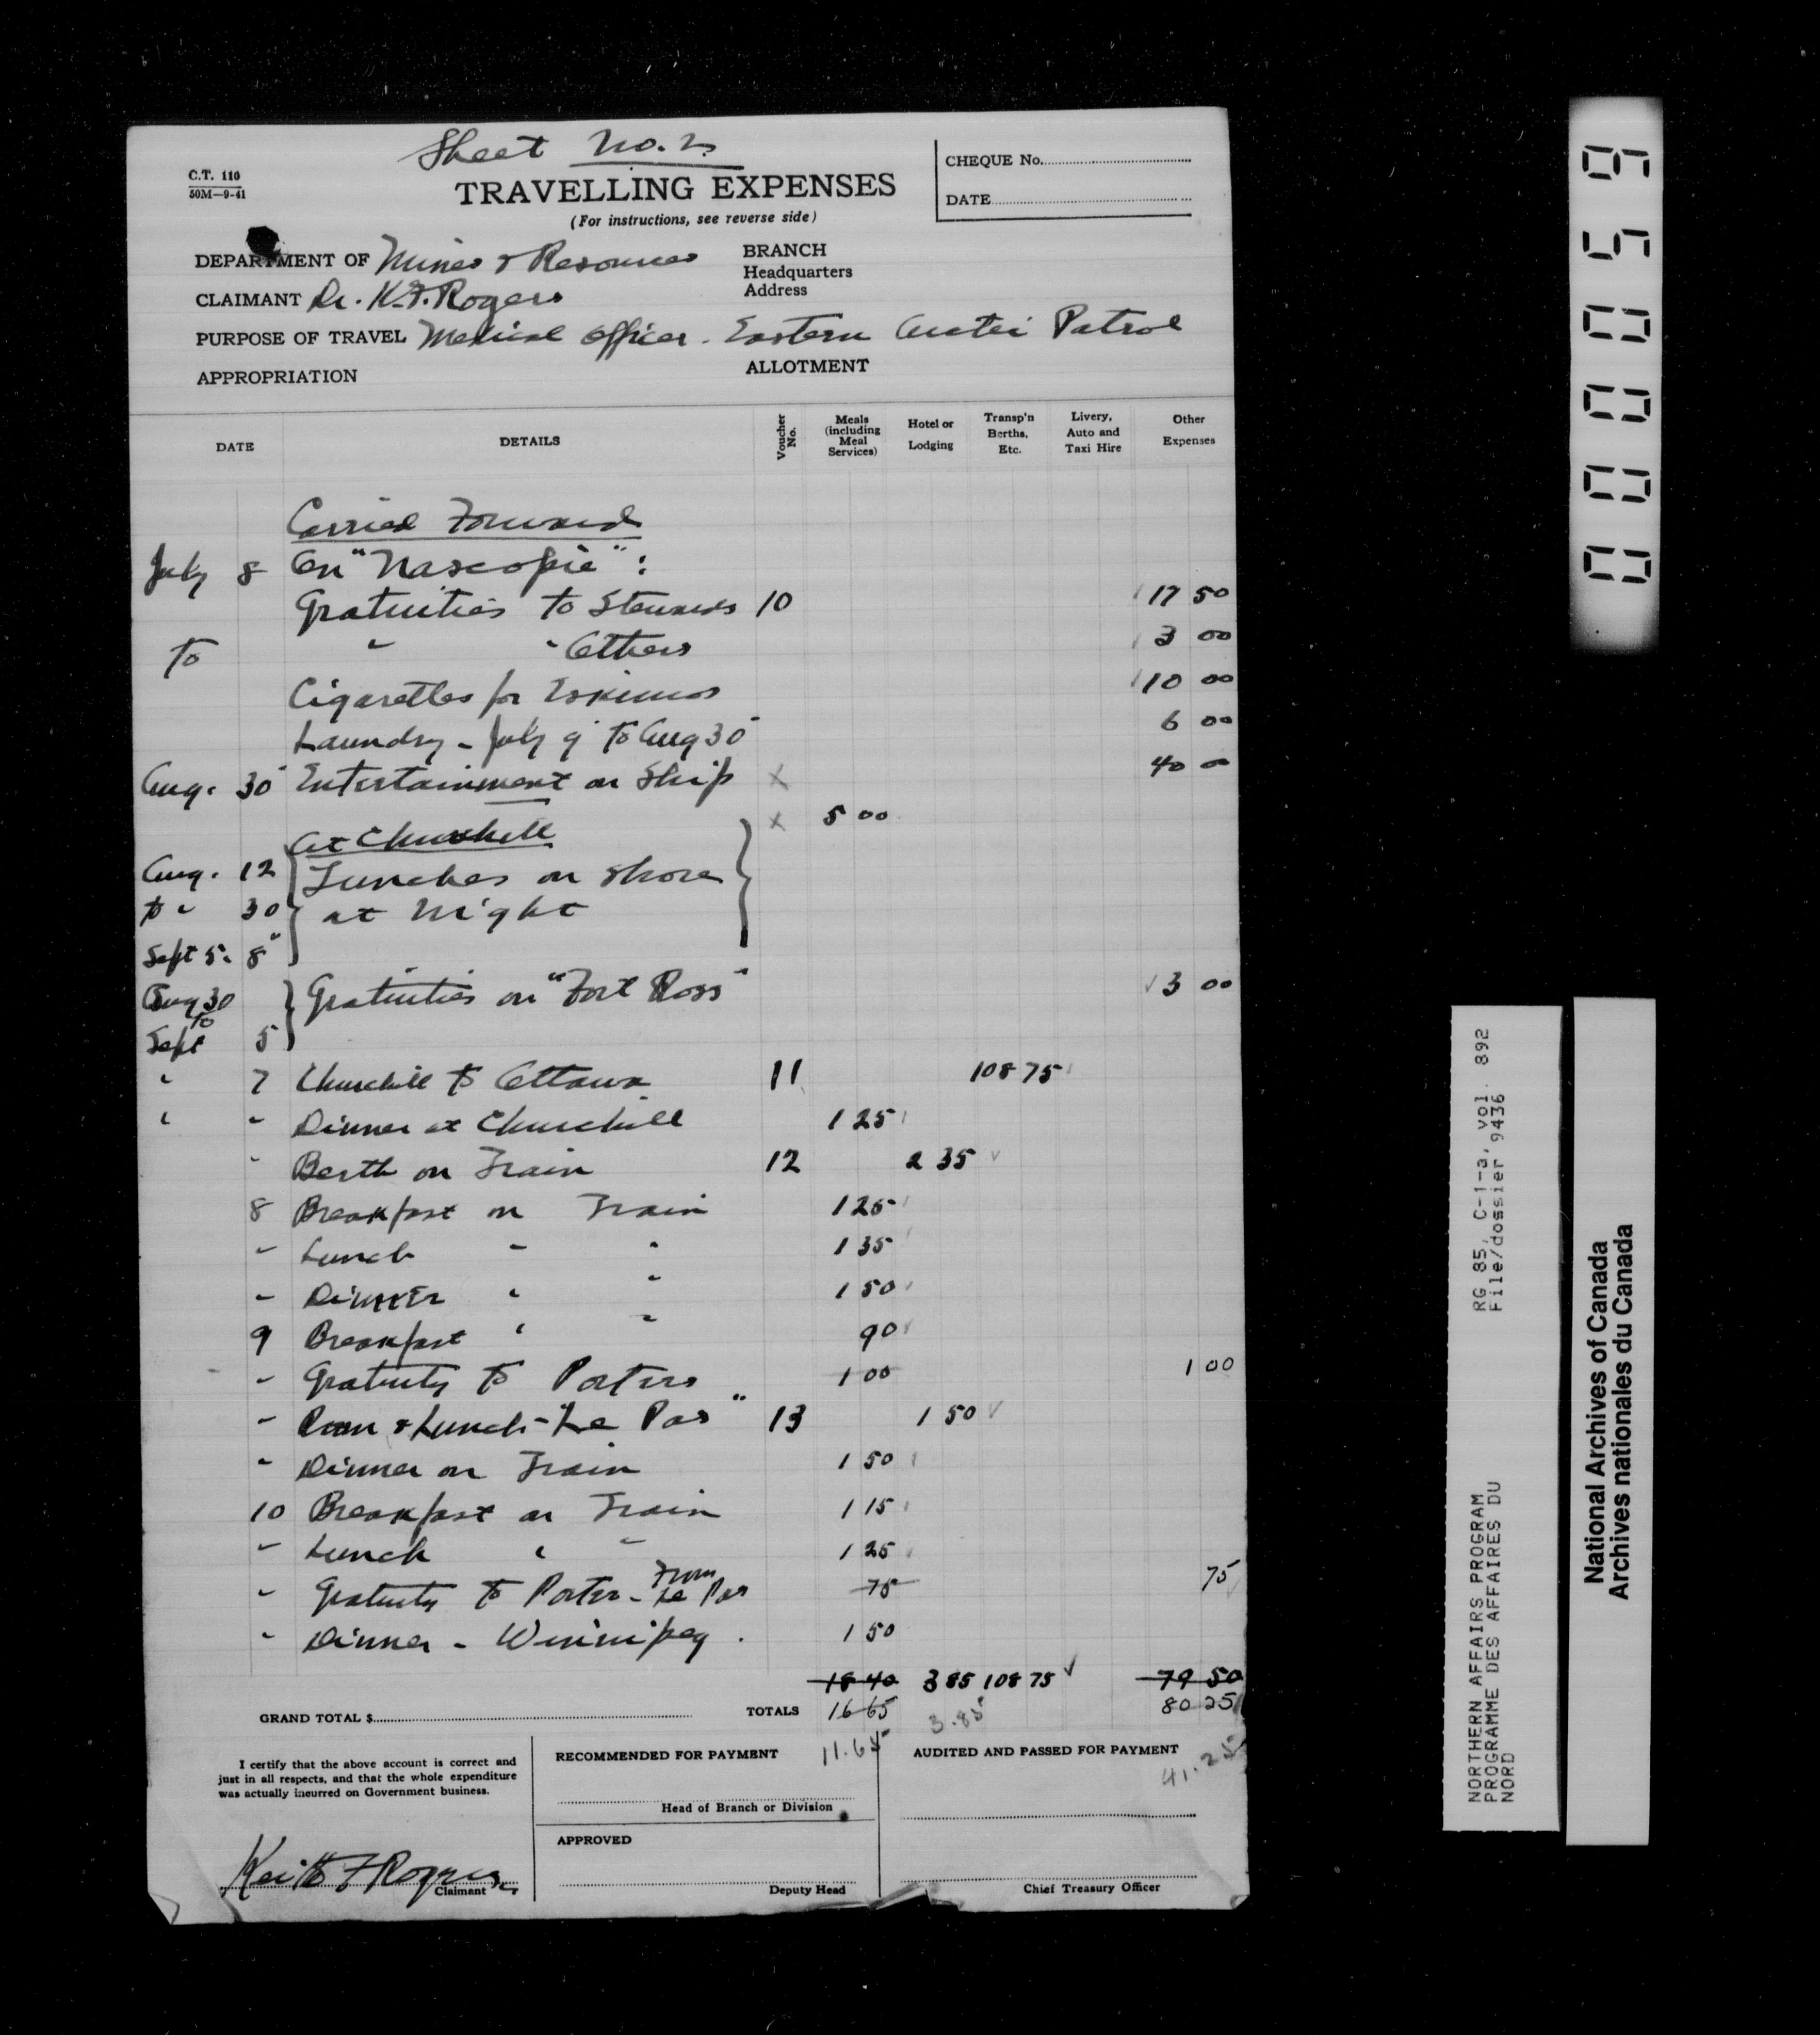 Sheet No. 2.
C.T. 110
50M—9-41
TRAVELLING EXPENSES
(For instructions, see reverse side)
CHEQUE No.
DATE
DEPARTMENT OF Mines & Resources
BRANCH
Headquarters
Address
CLAIMANT Dr. K.F. Rogers
PURPOSE OF TRAVEL Medical Officer - Eastern Arctic Patrol
APPROPRIATION
ALLOTMENT
DATE DETAILS Voucher No. Meals (including Meal Services) Hotel or Lodging Transp'n Berths, Etc. Livery, Auto and Taxi Hire Other Expenses
Carried Forward
July 8 On "Nascopie":
Gratuities to Stewards 10 17 50
To " " Others 3 00
Cigarettes for Eskimos 10 00
Laundry - July 9 to Aug 30 6 00
Aug. 30 Entertainment on Ship X 40 00
At Churchill X 5 00
Aug. 12 Lunches on shore
to " 30 at Night
Sept 5. 8
Aug 30 Gratuities on "Fort Ross" 3 00
to
Sept 5
" 7 Churchill to Ottawa 11 108 75
" " Dinner at Churchill 1 25
" Berth on Train 12 2 35
8 Breakfast on Train 1 25
" Lunch " " 1 35
" Dinner " " 1 50
9 Breakfast " " 90
" Gratuity to Porters 1 00 1 00
" Room & Lunch - "Le Pas" 13 1 50
" Dinner on Train 1 50
10 Breakfast on Train 1 15
" Lunch " " 1 25
" Gratuity to Porter - From Le Pas 75 75
" Dinner - Winnipeg. 1 50
18 40 3 85 108 75 79 50
GRAND TOTAL $ TOTALS 16 65 3.85 80 25
11.65 41.25
I certify that the above account is correct and
just in all respects, and that the whole expenditure
was actually incurred on Government business.
Keith F Rogers
Claimant
RECOMMENDED FOR PAYMENT
Head of Branch or Division
APPROVED
Deputy Head
AUDITED AND PASSED FOR PAYMENT
Chief Treasury Officer
000059
RG 85, C-1-a, vol. 892
File/dossier 9436
NORTHERN AFFAIRS PROGRAM
PROGRAMME DES AFFAIRES DU
NORD
National Archives of Canada
Archives nationales du Canada